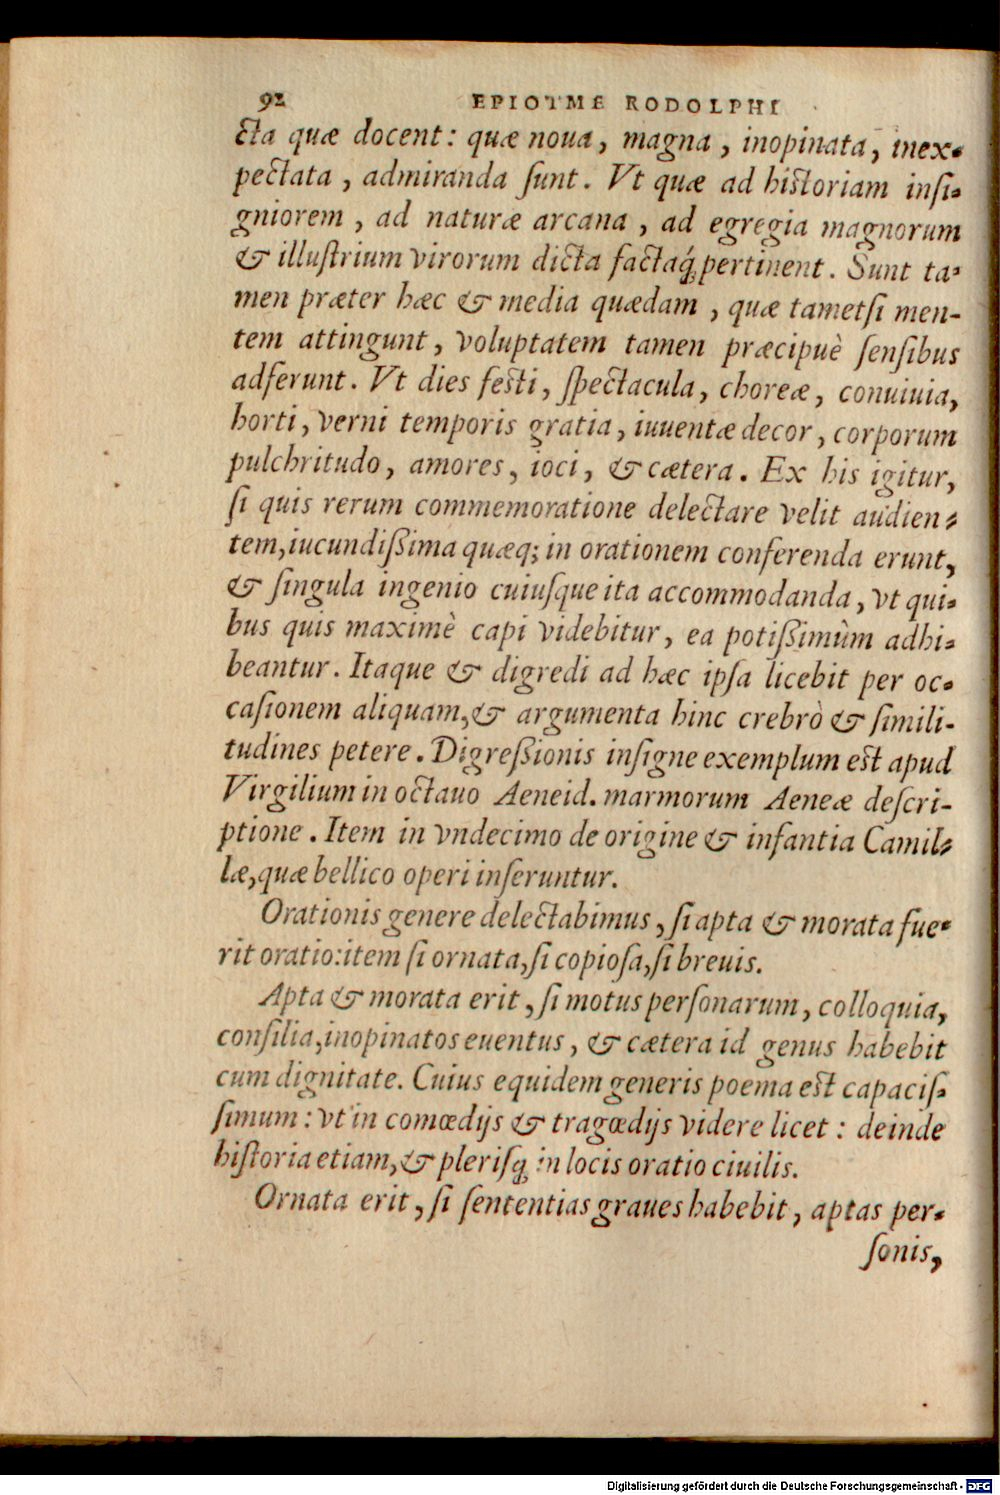 92 EPIOTME RODOLPHI
cta quæ docent: quæ noua, magna, inopinata, inex-
pectata, admiranda ſunt. Vt quæ ad historiam inſi-
gniorem, ad naturæ arcana, ad egregia magnorum
& illuſtrium virorum dicta factaq́; pertinent. Sunt ta-
men præter hæc & media quædam, quæ tametſi men-
tem attingunt, voluptatem tamen præcipuè ſenſibus
adferunt. Vt dies feſti, ſpectacula, choreæ, conuiuia,
horti, verni temporis gratia, iuuentæ decor, corporum
pulchritudo, amores, ioci, & cætera. Ex his igitur,
ſi quis rerum commemoratione delectare velit audien-
tem, iucundißima quæq; in orationem conferenda erunt,
& ſingula ingenio cuiuſque ita accommodanda, vt qui-
bus quis maximè capi videbitur, ea potißimùm adhi-
beantur. Itaque & digredi ad hæc ipſa licebit per oc-
caſionem aliquam, & argumenta hinc crebrò & ſimili-
tudines petere. Digreßionis inſigne exemplum est apud
Virgilium in octauo Aeneid. marmorum Aeneæ deſcri-
ptione. Item in vndecimo de origine & infantia Camil-
læ, quæ bellico operi inſeruntur.
Orationis genere delectabimus, ſi apta & morata fue-
rit oratio: item ſi ornata, ſi copioſa, ſi breuis.
Apta & morata erit, ſi motus perſonarum, colloquia,
conſilia, inopinatos euentus, & cætera id genus habebit
cum dignitate. Cuius equidem generis poema est capaciſ-
ſimum: vt in comœdijs & tragœdijs videre licet: deinde
hiſtoria etiam, & pleriſq; in locis oratio ciuilis.
Ornata erit, ſi ſententias graues habebit, aptas per-
ſonis,
Digitalisierung gefördert durch die Deutsche Forschungsgemeinschaft - DFG